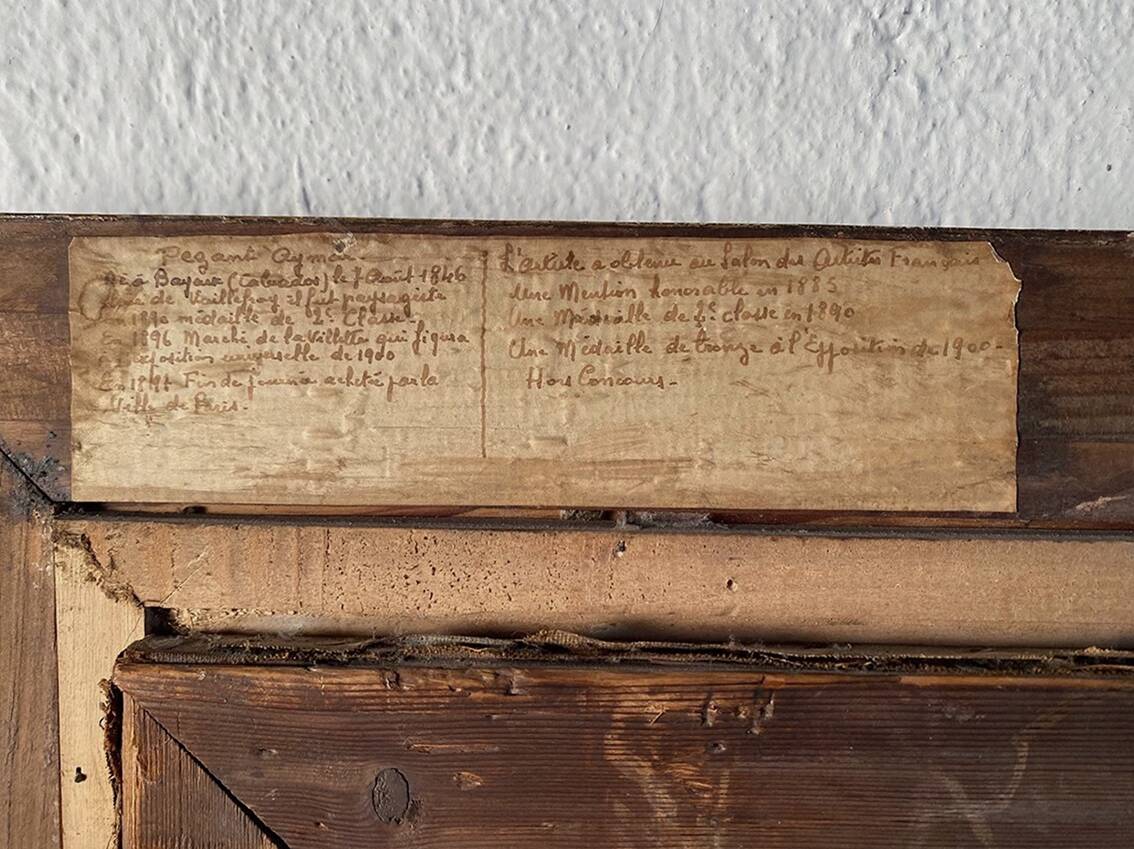 Pezant Aymar.
Né à Bayeux (Calvados) le 7 Août 1846
Elève de Vuillefroy il fut paysagiste
En 1890 médaille de 2e Classe.
En 1896 Marché de la Villette qui figura
à l'exposition universelle de 1900
En 1897 Fin de journée achetée par la
Ville de Paris.
L'artiste a obtenu au Salon des Artistes Français
Une Mention honorable en 1885
Une Médaille de classe en 1890
Une Médaille de bronze à l'Exposition de 1900-
Hors Concours-